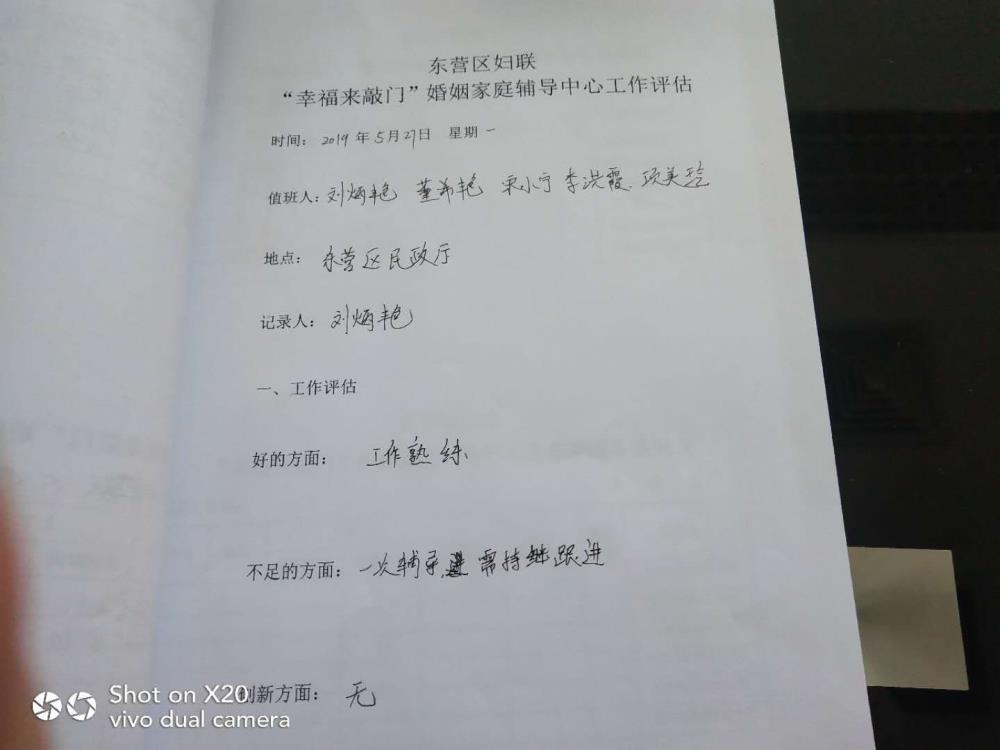 东营区妇联
“幸福来敲门”婚姻家庭辅导中心工作评估
时间：2019年5月27日 星期一
值班人：刘炳艳 董希艳 宋小宁 李洪霞 项美玲
地点：东营区民政厅
记录人：刘炳艳
一、工作评估
好的方面：工作熟练
不足的方面：一次辅导，需持继跟进
创新方面：无
Shot on X20
vivo dual camera